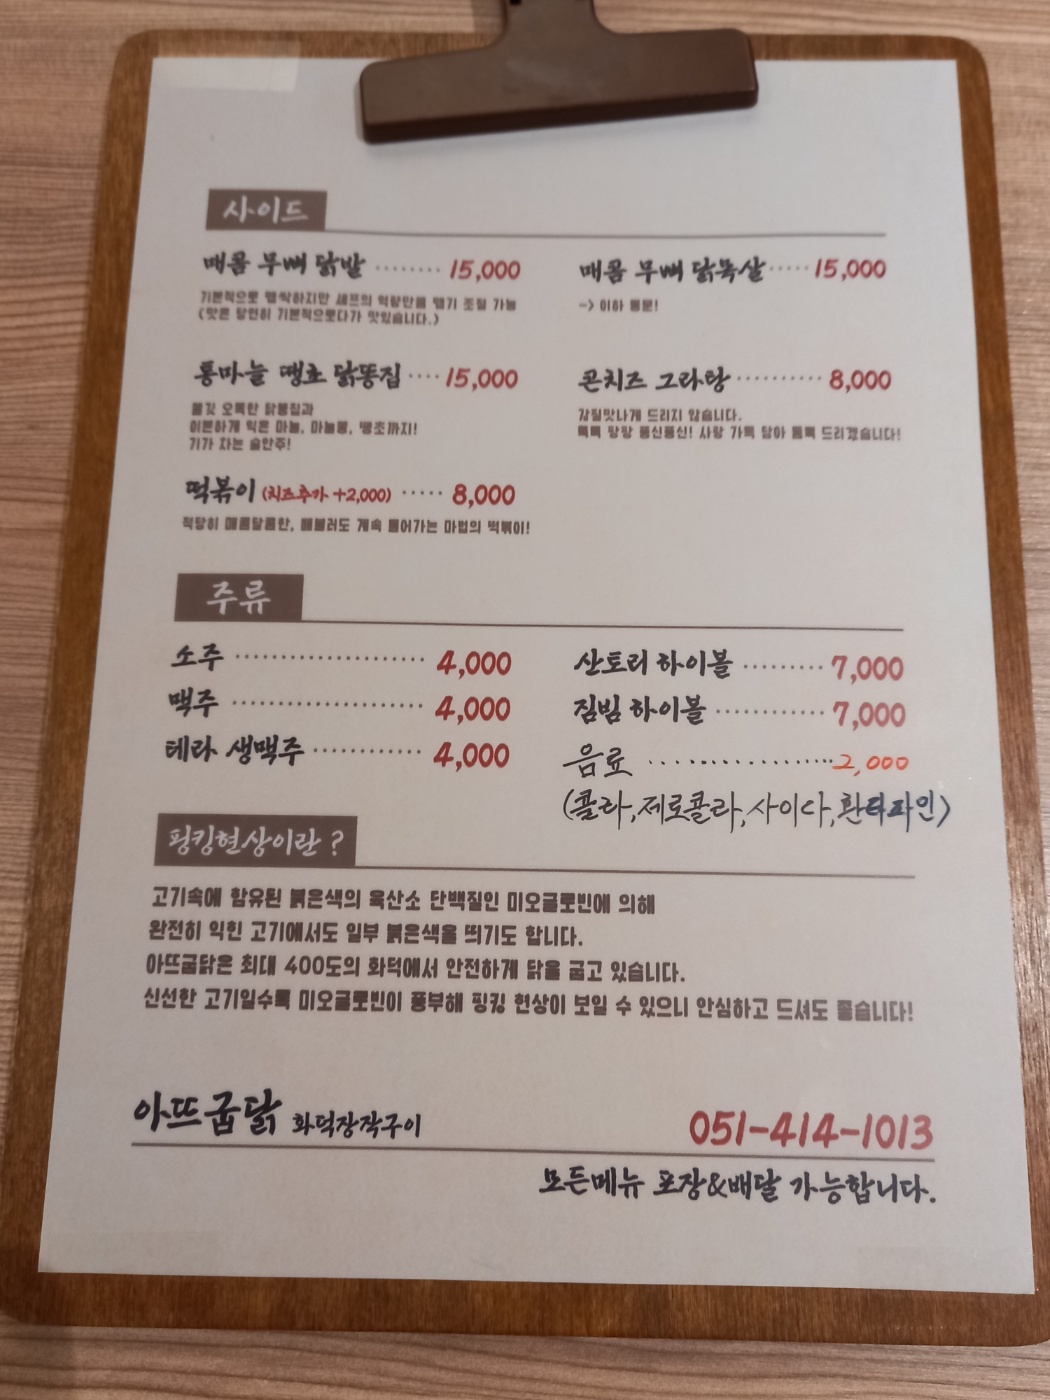 사이드
매콤 무뼈 닭발 ········ 15,000
기본적으로 맵싹하지만 셰프의 역량만큼 맵기 조절 가능
(맛은 당연히 기본적으로다가 맛있습니다.)
매콤 무뼈 닭목살 ····· 15,000
-> 이하 동문!
통마늘 땡초 닭똥집 ···· 15,000
쫄깃 오독한 닭똥집과
이븐하게 익은 마늘, 마늘쫑, 땡초까지!
기가 차는 술안주!
콘치즈 그라탕 ·········· 8,000
감질맛나게 드리지 않습니다.
톡톡 팡팡 퐁신퐁신! 사랑 가득 담아 듬뿍 드리겠습니다!
떡볶이 (치즈추가 +2,000) ····· 8,000
적당히 매콤달콤한, 배불러도 계속 들어가는 마법의 떡볶이!
주류
소주 ····················· 4,000
맥주 ····················· 4,000
테라 생맥주 ············ 4,000
산토리 하이볼 ········· 7,000
짐빔 하이볼 ············ 7,000
음료 ···················· 2,000
(콜라,제로콜라,사이다,환타파인)
핑킹현상이란 ?
고기속에 함유된 붉은색의 육산소 단백질인 미오글로빈에 의해
완전히 익힌 고기에서도 일부 붉은색을 띄기도 합니다.
아뜨굽닭은 최대 400도의 화덕에서 안전하게 닭을 굽고 있습니다.
신선한 고기일수록 미오글로빈이 풍부해 핑킹 현상이 보일 수 있으니 안심하고 드셔도 좋습니다!
아뜨굽닭 화덕장작구이
051-414-1013
모든메뉴 포장&배달 가능합니다.